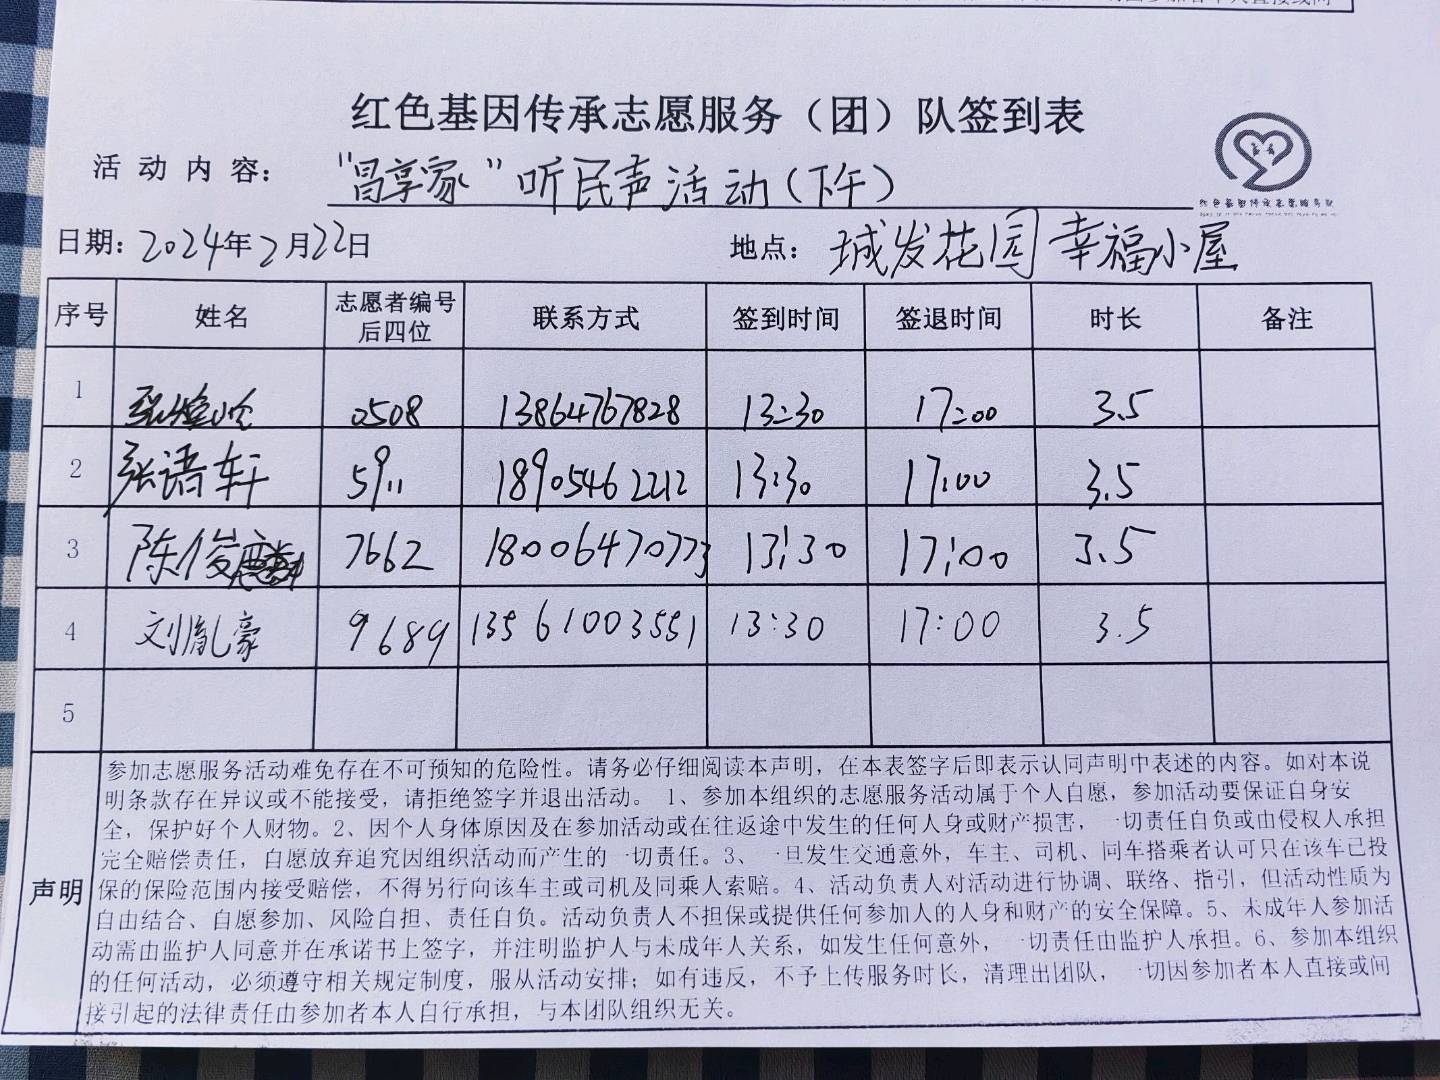 红色基因传承志愿服务（团）队签到表
活动内容：“昌享家”听民声活动（下午）
日期：2024年2月22日 地点：城发花园幸福小屋
序号 姓名 志愿者编号后四位 联系方式 签到时间 签退时间 时长 备注
1 张 0508 13864767828 13:30 17:00 3.5
2 张语轩 5911 18905462212 13:30 17:00 3.5
3 陈俊 7662 18006470773 13:30 17:00 3.5
4 刘胤豪 9689 13561003551 13:30 17:00 3.5
5
声明
参加志愿服务活动难免存在不可预知的危险性。请务必仔细阅读本声明，在本表签字后即表示认同声明中表述的内容。如对本说
明条款存在异议或不能接受，请拒绝签字并退出活动。 1、参加本组织的志愿服务活动属于个人自愿，参加活动要保证自身安
全，保护好个人财物。2、因个人身体原因及在参加活动或在往返途中发生的任何人身或财产损害，一切责任自负或由侵权人承担
完全赔偿责任，自愿放弃追究因组织活动而产生的一切责任。3、一旦发生交通意外，车主、司机、同车搭乘者认可只在该车已投
保的保险范围内接受赔偿，不得另行向该车主或司机及同乘人索赔。4、活动负责人对活动进行协调、联络、指引，但活动性质为
自由结合、自愿参加、风险自担、责任自负。活动负责人不担保或提供任何参加人的人身和财产的安全保障。5、未成年人参加活
动需由监护人同意并在承诺书上签字，并注明监护人与未成年人关系，如发生任何意外，一切责任由监护人承担。6、参加本组织
的任何活动，必须遵守相关规定制度，服从活动安排；如有违反，不予上传服务时长，清理出团队，一切因参加者本人直接或间
接引起的法律责任由参加者本人自行承担，与本团队组织无关。